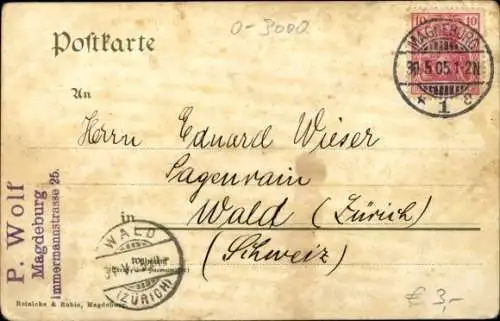 O-3000
10 10
MAGDEBURG
30.5.05.1-2N
* 1 c
Postkarte
An
Herrn Eduard Wieser
Sagenrain
in
Wald (Zürich)
(Schweiz)
P. Wolf
Magdeburg
Immermannstrasse 25.
WALD
(ZÜRICH)
Wohnung
Reinicke & Rubin, Magdeburg.
€ 3,-